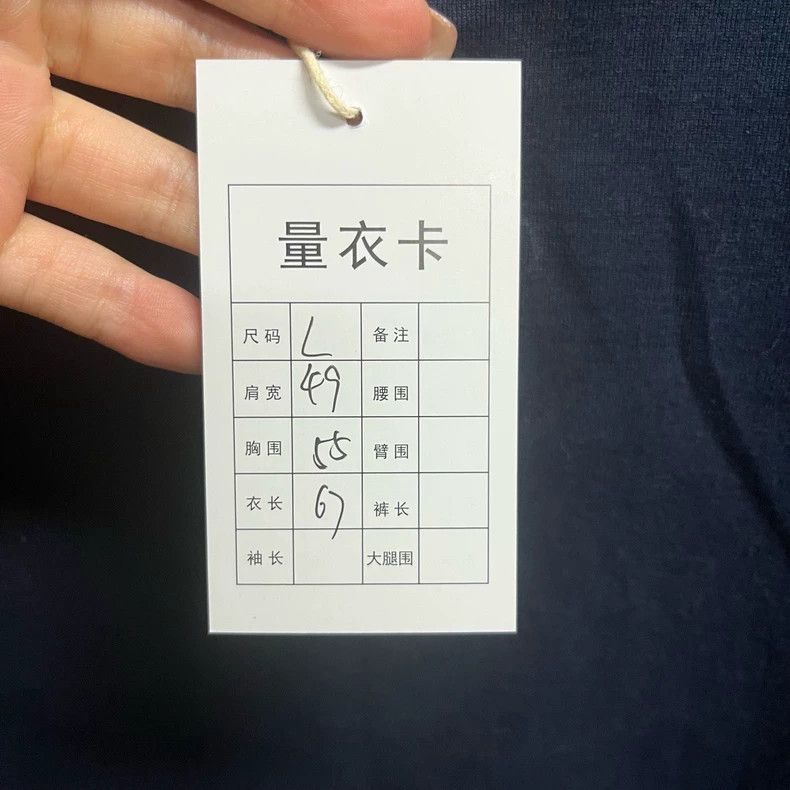 量衣卡
尺码 L 备注
肩宽 49 腰围
胸围 55 臂围
衣长 67 裤长
袖长 大腿围